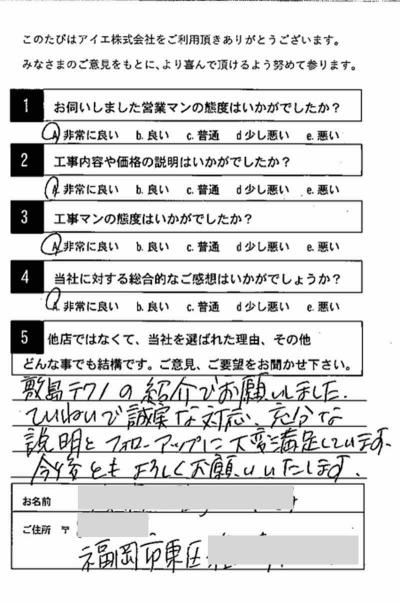 このたびはアイエ株式会社をご利用頂きありがとうございます。
みなさまのご意見をもとに、より喜んで頂けるよう努めて参ります。
1 お伺いしました営業マンの態度はいかがでしたか?
A 非常に良い b. 良い c. 普通 d 少し悪い e. 悪い
2 工事内容や価格の説明はいかがでしたか?
A 非常に良い b. 良い c. 普通 d 少し悪い e. 悪い
3 工事マンの態度はいかがでしたか?
A 非常に良い b. 良い c. 普通 d 少し悪い e. 悪い
4 当社に対する総合的なご感想はいかがでしょうか?
A 非常に良い b. 良い c. 普通 d 少し悪い e. 悪い
5 他店ではなくて、当社を選ばれた理由、その他
どんな事でも結構です。ご意見、ご要望をお聞かせ下さい。
敷島テクノの紹介でお願いしました.
ていねいで誠実な対応、充分な
説明とフォローアップに大変満足しています.
今後ともよろしくお願いいたします.
お名前
ご住所 〒
福岡市東区